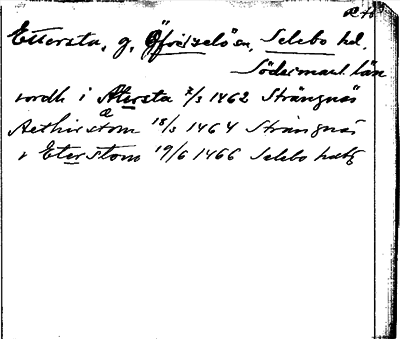 Ettersta, g, Öfverselö sn, Selebo hd,
Södermanl. län
vordh i Atersta 7/3 1462 Strängnäs
a
Aethirstom 18/3 1464 Strängnäs
i Eterstom 19/6 1466 Selebo